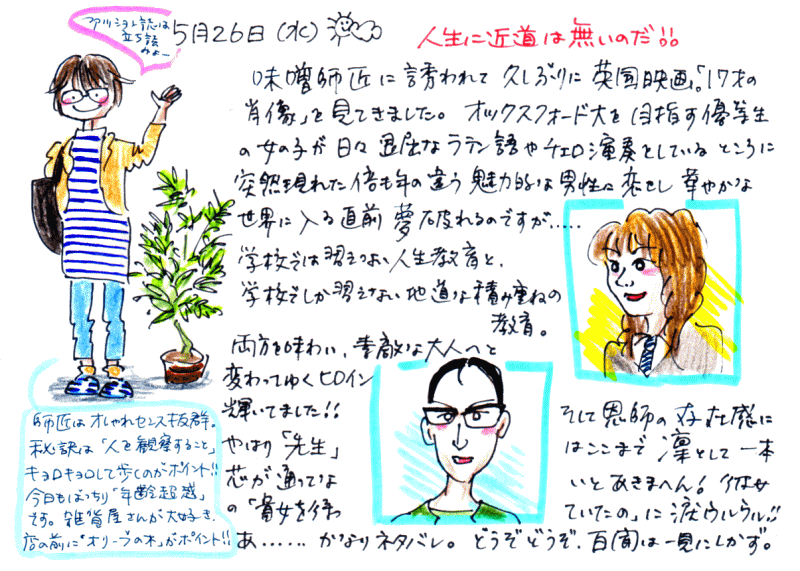 ファッション誌は
立ち読
みよー
5月26日(水)
人生に近道は無いのだ!!
味噌師匠に誘われて久しぶりに英国映画「17才の
肖像」を見てきました。オックスフォード大を目指す優等生
の女の子が日々退屈なラテン語やチェロ演奏としているところに
突然現れた倍も年の違う魅力的な男性に恋をし華やかな
世界に入る直前夢破れるのですが.....
学校では習えない人生教育と、
学校でしか習えない地道な積み重ねの
教育。
両方を味わい、素敵な大人へと
変わってゆくヒロイン
輝いてました!!
やはり「先生」
芯が通ってな
の「貴女を待
あ......かなりネタバレ。どうぞどうぞ、百聞は一見にしかず。
そして恩師の存在感に
はここまで凛として一本
いとあきまへん!
ていたの」に涙ウルウル!!
師匠はオシャレセンス抜群。
秘訣は「人を観察すること」
キョロキョロして歩くのがポイント!!
今日もばっちり「年齢超惑」
です。雑貨屋さんが大好き、
店の前に"オリーブの木"がポイント!!